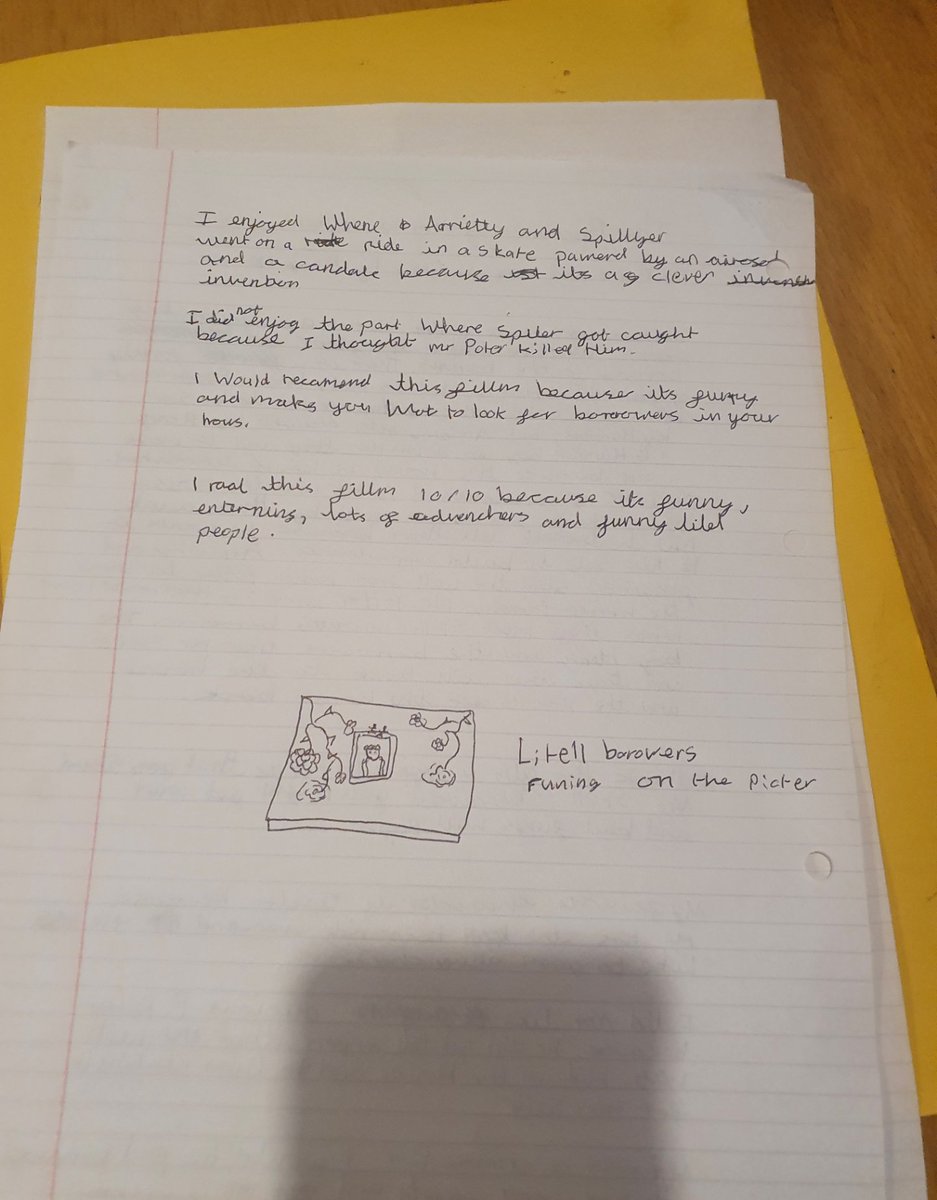 I enjoyed Where Arrietty and Spillyer
went on a ride ride in a skate pawerd by an airosol
and a candale because its a clever
invention
I did not enjoy the part Where Spiler got caught
because I thought mr Poter killed Him.
I Would recamend this fillm because its funny
and makes you Wat to look for boroowers in your
hous.
I raat this fillm 10/10 because its funny,
enterning, lots of advenchers and funny litel
people.
Litell borowers
Funing on the Picter